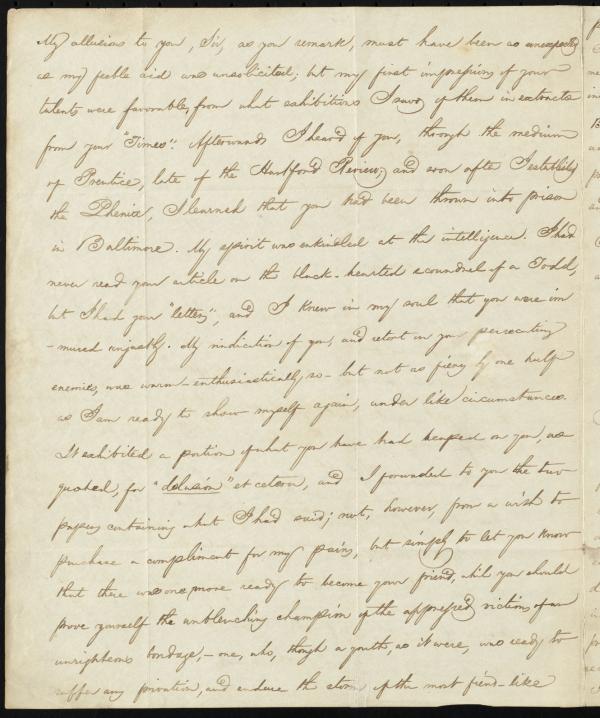 My allusion to you, Sir, as you remark, must have been as unexpected
as my feeble aid was unsolicited; but my first impressions of your
talents were favorable, from what exhibitions I saw of them in extracts
from your "Times". Afterwards I heard of you, through the medium
of Prentice, late of the Hartford Review; and soon after I established
the Phenix, I learned that you had been thrown into prison
in Baltimore. My spirit was enkindled at the intelligence. I had
never read your article on the black-hearted scoundrel of a Todd,
but I had your "letters", and I knew in my soul that you were im
-mured unjustly. My vindication of you, and retort on your persecuting
enemies, was warm - enthusiastically so - but not as fiery by one half
as I am ready to show myself again, under like circumstances.
It exhibited a portion of what you have had heaped on you, as
quoted, for "delusion" et cetera, and I forwarded to you the two
papers containing what I had said; not, however, from a wish to
purchase a compliment for my pains, but simply to let you know
that there was one more ready to become your friend, while you should
prove yourself the unblenching champion of the oppressed victims of an
unrighteous bondage, - one, who, though a youth, as it were, was ready to
suffer any privation, and endure the storm of the most fiend-like